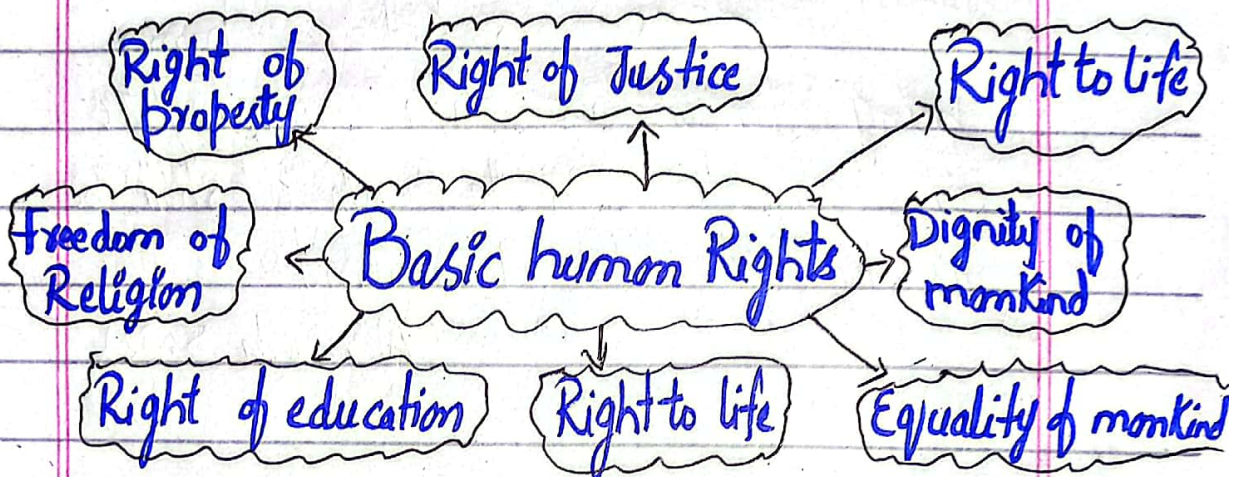 Right of
property
Right of Justice
Right to life
Freedom of
Religion
Basic human Rights
Dignity of
mankind
Right of education
Right to life
Equality of mankind